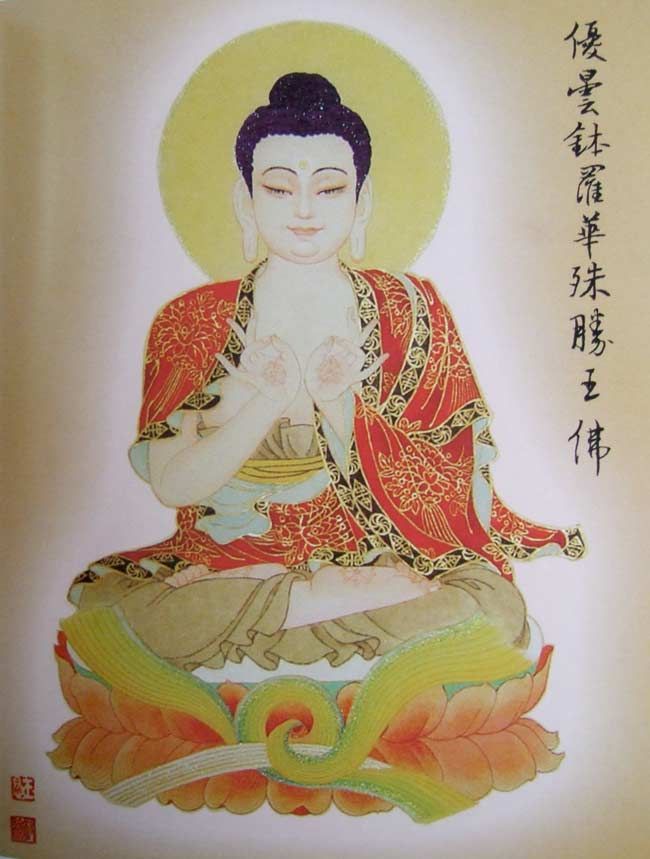 優曇鉢羅華殊勝王佛